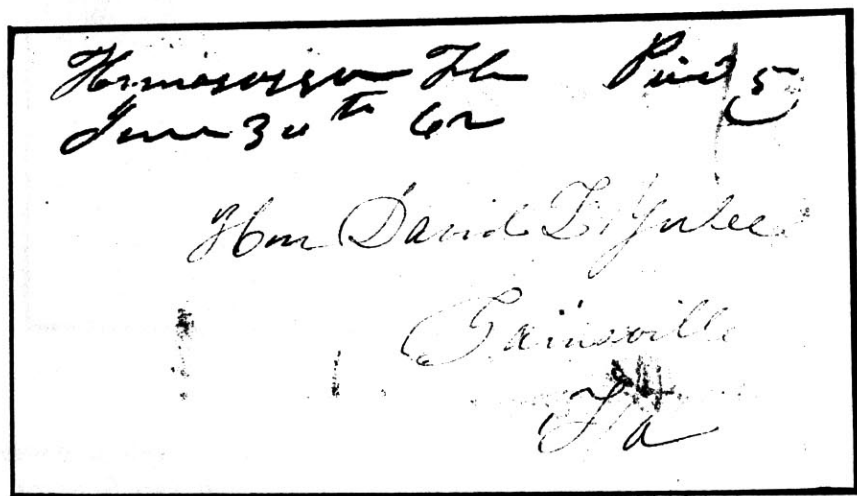 Homosassa Fla Paid 5
June 30th 62
Hon David L Yulee
Gainsville
Fla